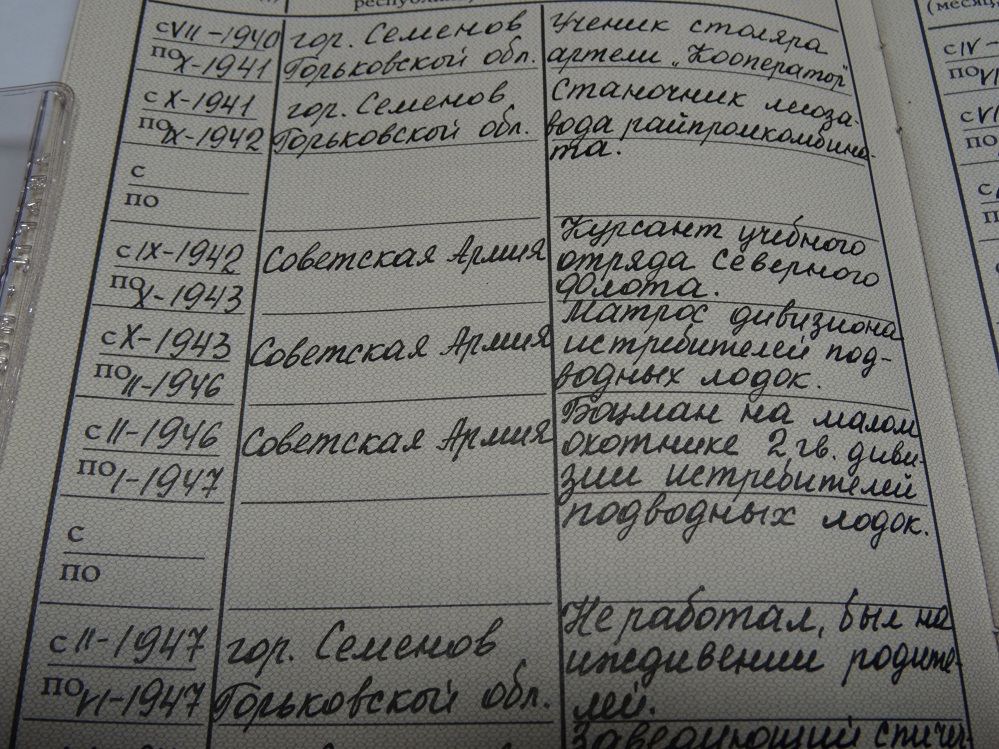 республика,
(месяц
с VII-1940 гор. Семенов Ученик столяра
по X-1941 Горьковской обл. артели „Кооператор"
с X-1941 гор. Семенов Станочник лесоза-
по IX-1942 Горьковской обл. вода райпромкомбина-
та.
с
по
с IX-1942 Советская Армия Курсант учебного
по X-1943 отряда Северного
флота.
с X-1943 Советская Армия Матрос дивизиона
по II-1946 истребителей под-
водных лодок.
с II-1946 Советская Армия Боцман на малом
по I-1947 охотнике 2 гв. диви-
зии истребителей
подводных лодок.
с
по
с II-1947 гор. Семенов Не работал, был на
по VI-1947 Горьковской обл. иждивении родите-
лей.
Заведующий
с IV-
по VI
с VI
по
с